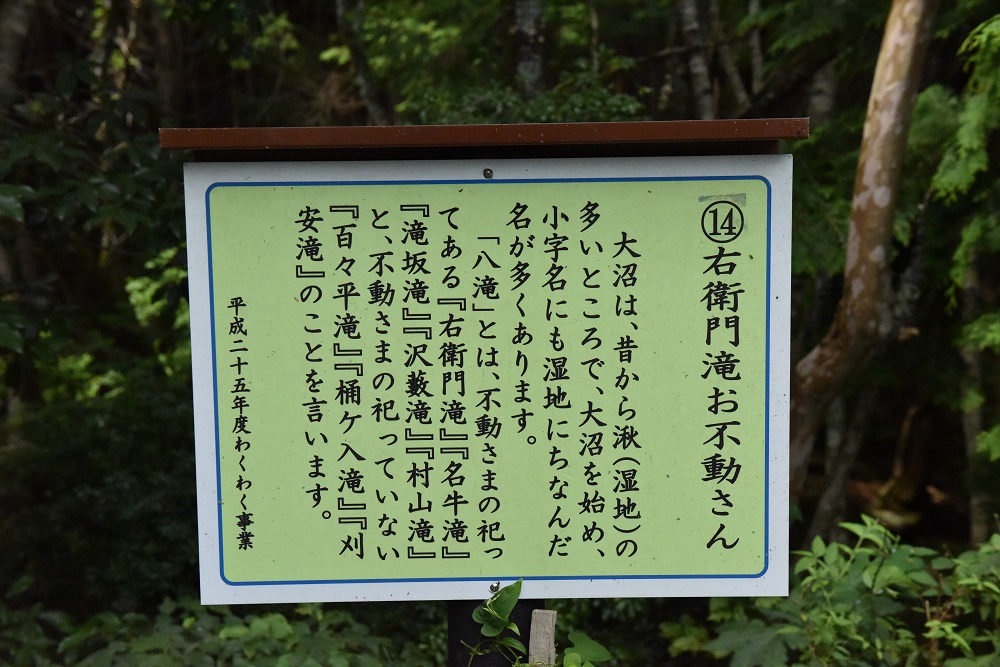 ⑭右衛門滝お不動さん
大沼は、昔から湫(湿地)の
多いところで、大沼を始め、
小字名にも湿地にちなんだ
名が多くあります。
「八滝」とは、不動さまの祀っ
てある『右衛門滝』『名牛滝』
『滝坂滝』『沢藪滝』『村山滝』
と、不動さまの祀っていない
『百々平滝』『桶ケ入滝』『刈
安滝』のことを言います。
平成二十五年度わくわく事業